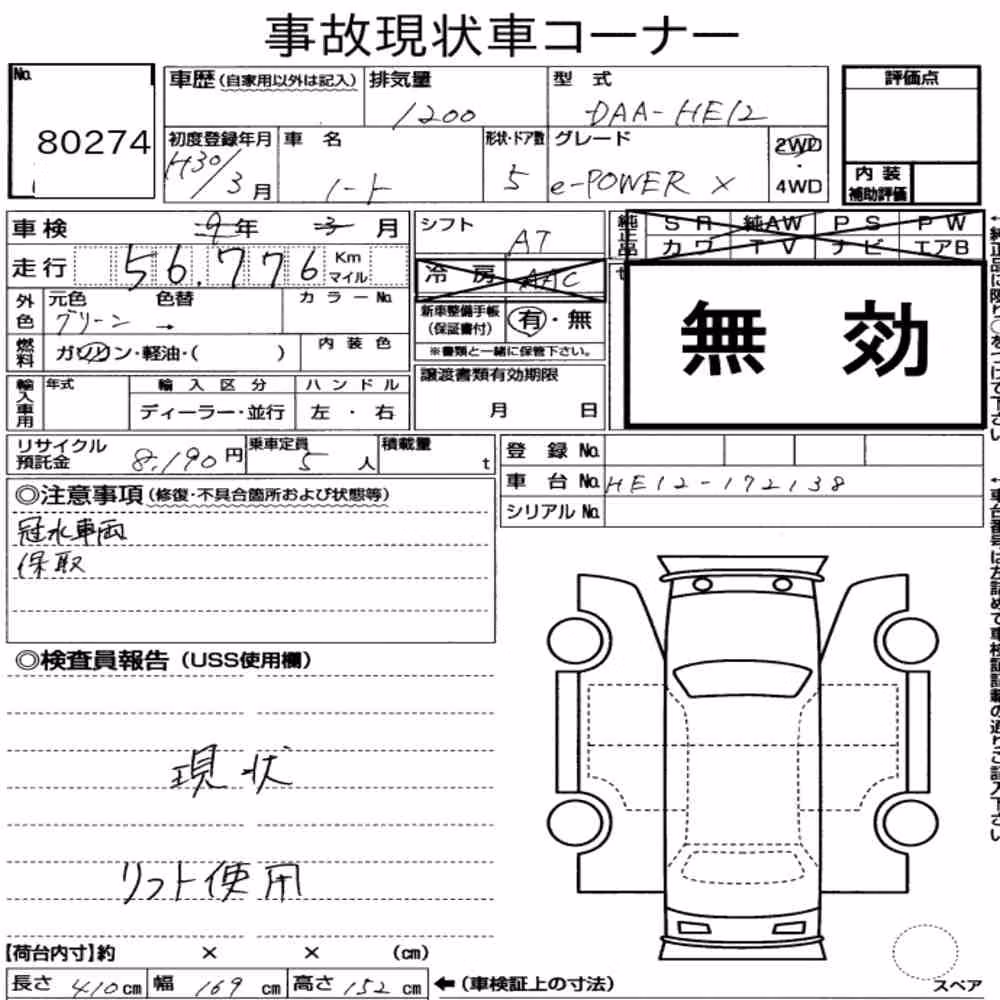 事故現状車コーナー
No. 80274
車歴(自家用以外は記入) 排気量 1200 型式 DAA-HE12 評価点
初度登録年月 H30/3月 車名 ノート 形状・ドア数 5 グレード e-POWER X 2WD・4WD
内装補助評価
車検 9年 3月 シフト AT
純正品 SR 純AW PS PW
カワ TV ナビ エアB
走行 56,776 Km マイル 冷房 AAC
外色 元色 グリーン 色替 → カラーNo.
新車整備手帳(保証書付) 有・無
※書類と一緒に保管下さい。
無効
燃料 ガソリン・軽油・( ) 内装色
譲渡書類有効期限 月 日
輸入車用 年式 輸入区分 ハンドル
ディーラー・並行 左・右
リサイクル預託金 8,190円 乗車定員 5人 積載量 t
登録No.
車台No. HE12-172138
シリアルNo.
◎注意事項(修復・不具合箇所および状態等)
冠水車両
保取
◎検査員報告(USS使用欄)
現状
リフト使用
【荷台内寸】約 × × (cm)
長さ 410cm 幅 169cm 高さ 152cm ←(車検証上の寸法)
スペア
←純正品に限り○をつけて下さい
←車台番号は左詰めで車検証記載の通りご記入下さい